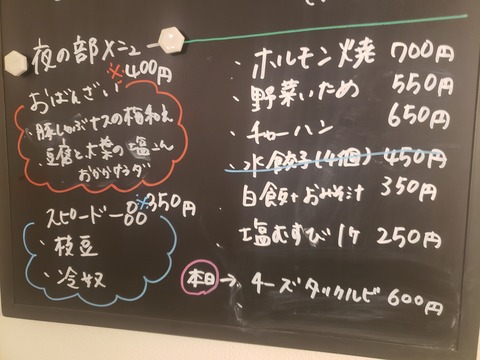 夜の部メニュー
おばんざい ※400円
・豚しゃぶナスの梅和え
・豆腐と大葉の塩こん
おかかサラダ
スピード一品 ※350円
・枝豆
・冷奴
・ホルモン焼 700円
・野菜いため 550円
・チャーハン 650円
・水餃子(4個) 450円
白飯+おみそ汁 350円
塩むすび1ケ 250円
本日→ チーズタッカルビ 600円